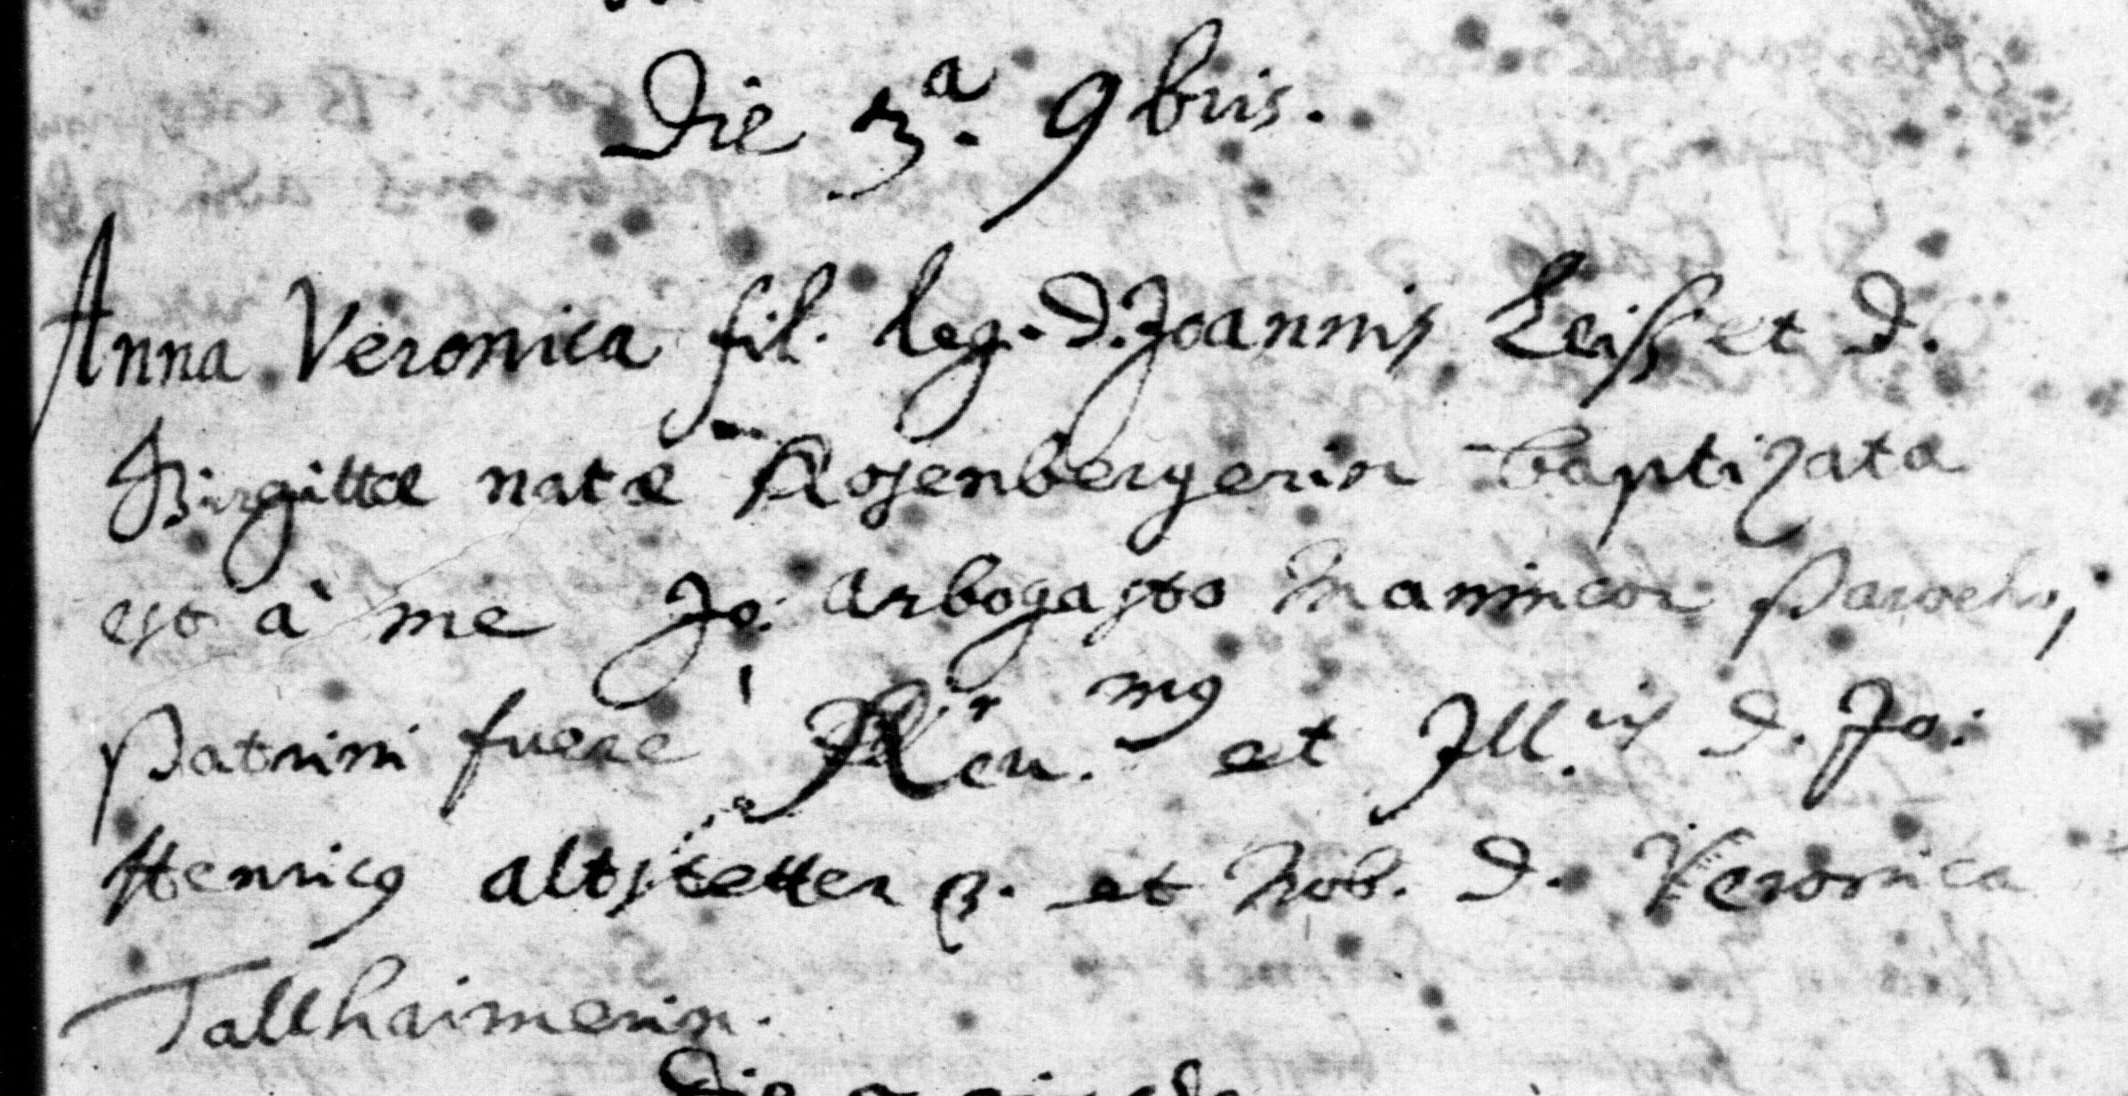 Die 3.a 9bris.
Anna Veronica fil. leg. D. Joannis Leiß et D.
Birgittæ natæ Rosenbergerin baptizata
est à me Jo: Arbogasto Manincor Parocho,
Patrini fuere Rev.mus et Ill.is D. Jo:
Henricus Altstetter et Nob. D. Veronica
Tallhaimerin.